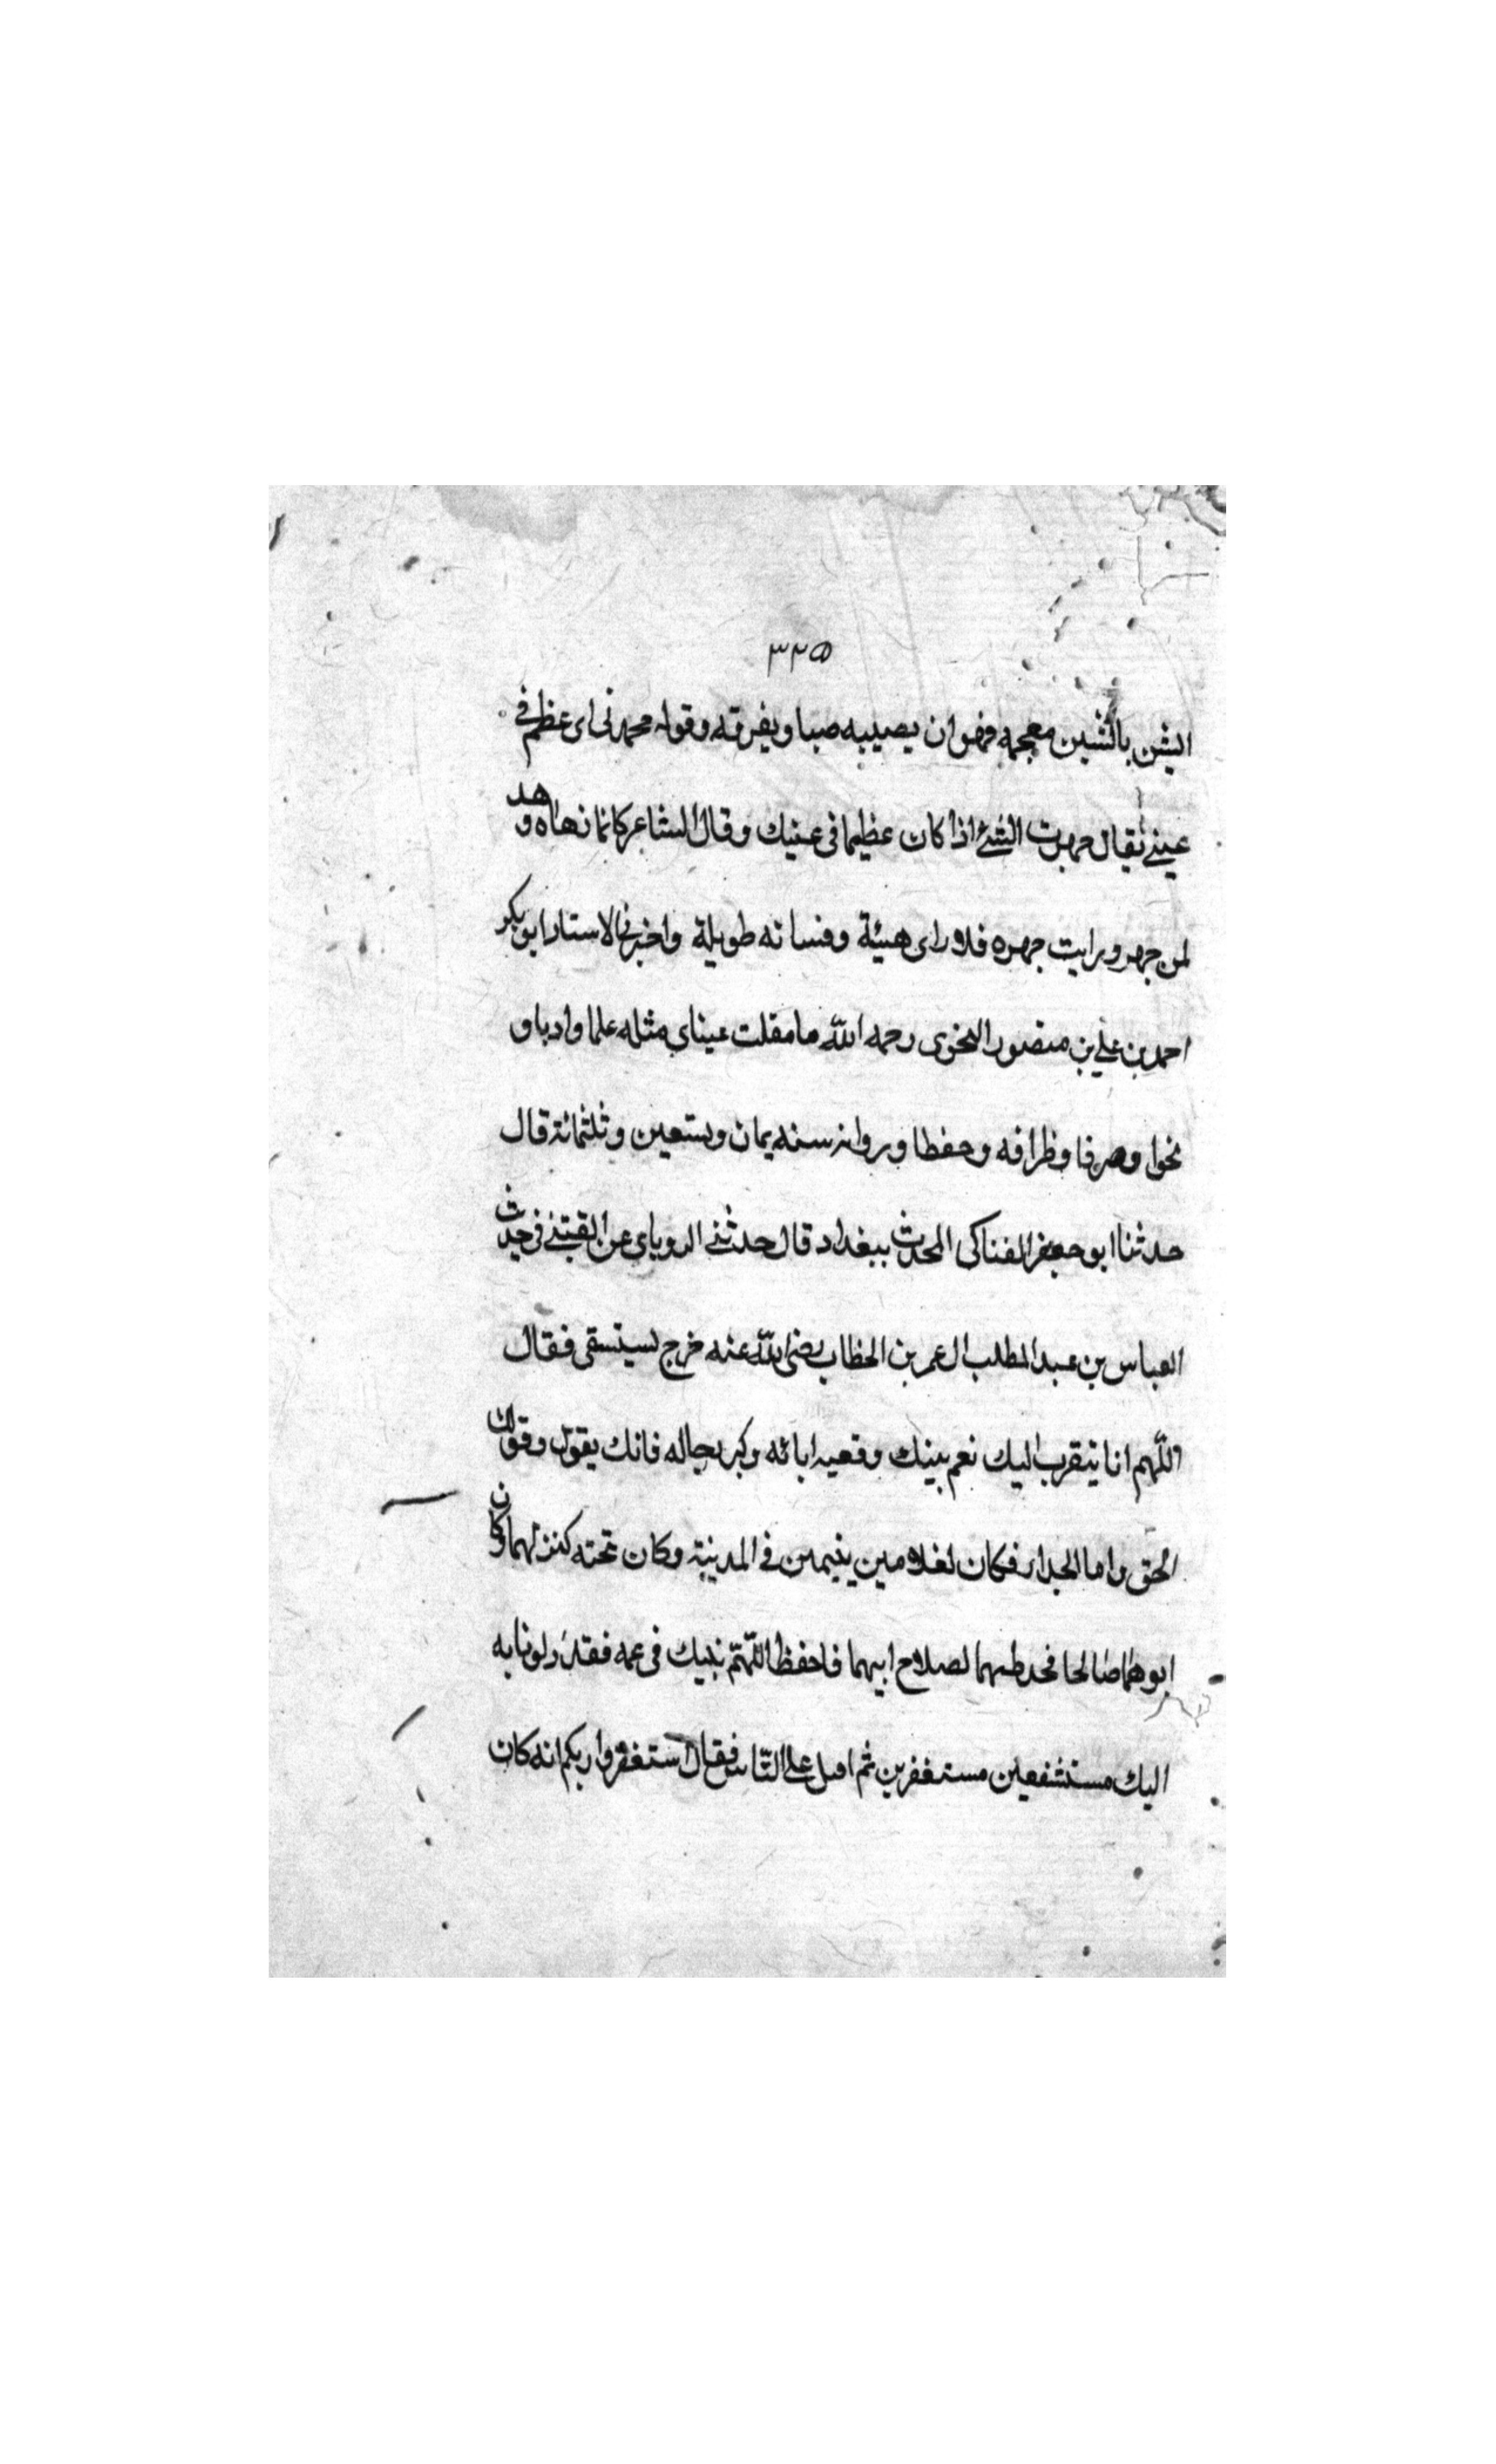 ٣٢٥
الشن بالشين معجمه فهو ان يصيبه صبا ويفرقه وقوله محمدنى اى عظم فى
عينى يقال جهرت الشئ اذا كان عظيما فى عينك وقال الشاعر كانما زهاه وهد
لمن جهر ورايت جهره فلا راى هيئة وفنساته طويلة واخبرنى الاستاد ابو بكر
احمد بن على بن منصور النحوى رحمه الله ما مقلت عيناى مثله علما وادبا و
نحوا وصرفا وظرافه وحفظا وروايه سنه يمان وستعين وثلثمائة قال
حدثنا ابو جعفر الفناكى المحدث ببغداد قال حدثنى الروياى عن القتبى فى حديث
العباس بن عبد المطلب ال عمر بن الخطاب رضى الله عنه خرج ليستسقى فقال
اللهم انا نتقرب اليك نعم بينك وقعيه ابائه وكبر رجاله فانك يقول وقولك
الحق واما الجدار فكان لغلامين يتيمين فى المدينة وكان تحته كنز لهما وكان
ابوهما صالحا فحفظهما لصلاح ابيهما فاحفظ اللهم نبيك فى عمه فقد دلونا به
اليك مستشفعين مستغفرين ثم اقبل على الناس فقال استغفروا ربكم انه كان